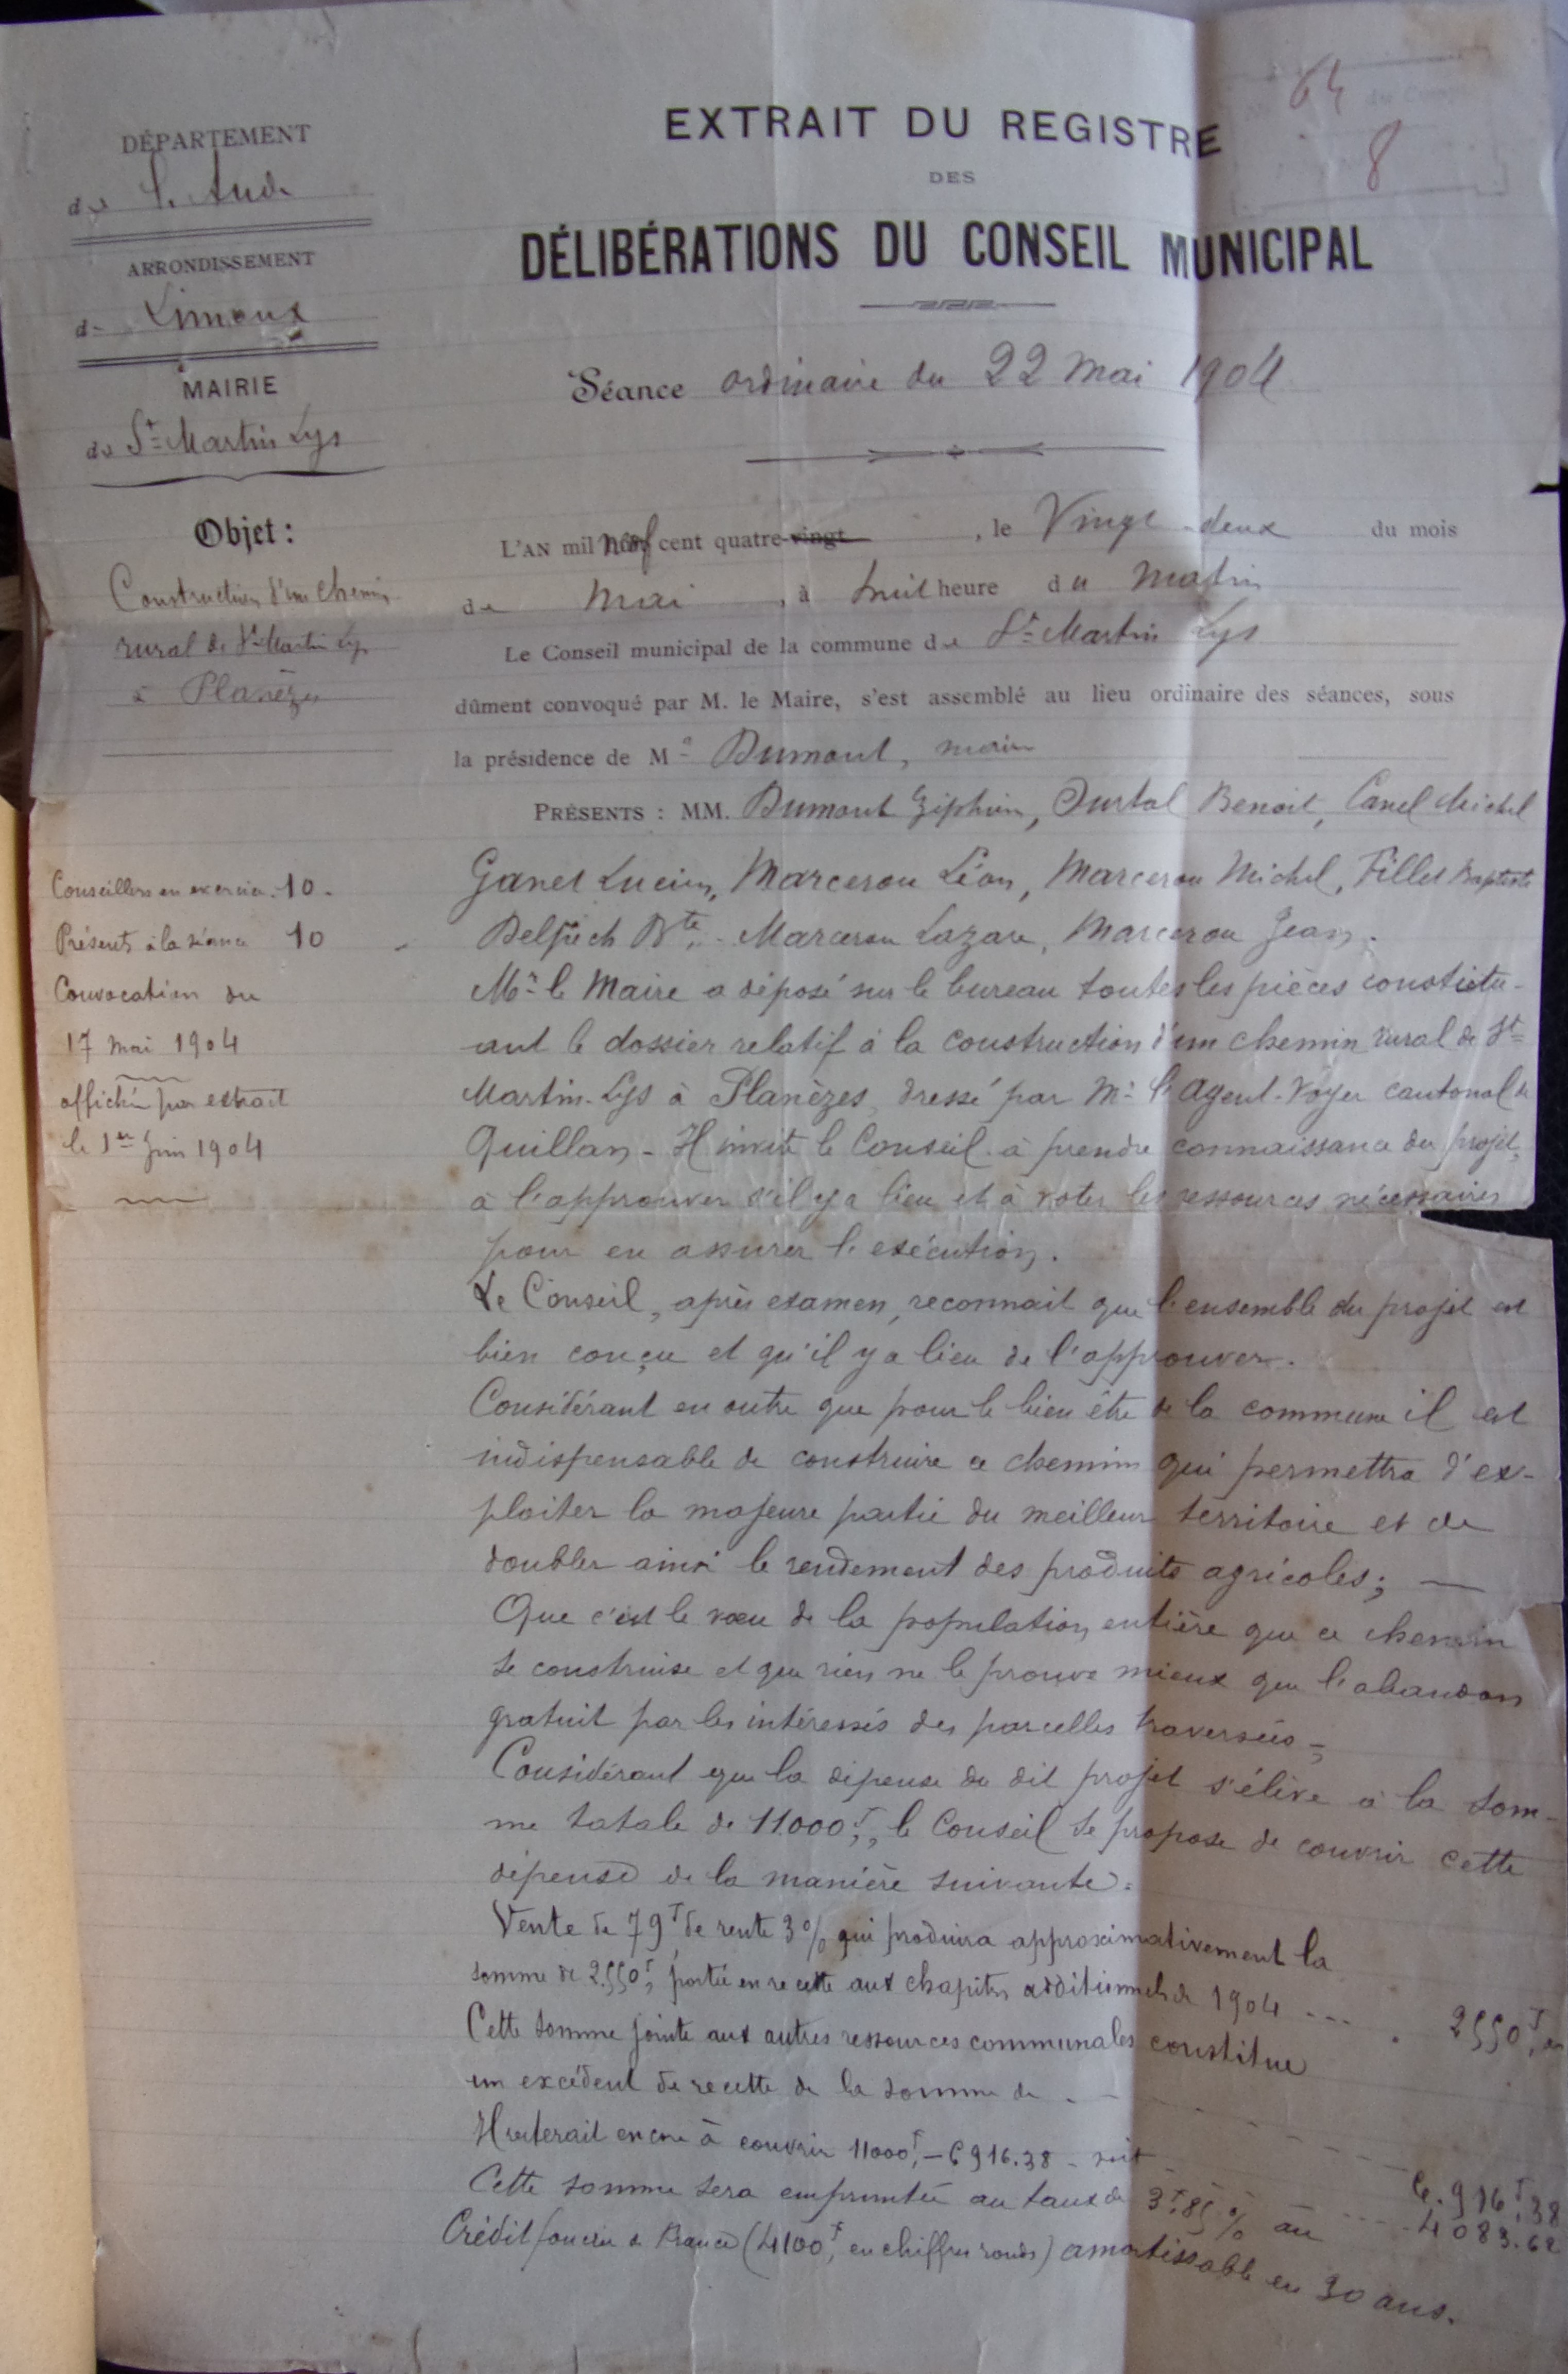 64
8
DÉPARTEMENT
de l'Aude
ARRONDISSEMENT
de Limoux
MAIRIE
de St Martin Lys
Objet :
Construction d'un chemin
rural de St Martin Lys
à Planèzes
Conseillers en exercice 10.
Présents à la séance 10
Convocation du
17 mai 1904
affichée par extrait
le 1er Juin 1904
EXTRAIT DU REGISTRE
DES
DÉLIBÉRATIONS DU CONSEIL MUNICIPAL
Séance ordinaire du 22 Mai 1904
L'AN mil neuf cent quatre-vingt , le Vingt-deux du mois
de Mai , à huit heure du Matin
Le Conseil municipal de la commune de St Martin Lys
dûment convoqué par M. le Maire, s'est assemblé au lieu ordinaire des séances, sous
la présidence de Mr Dumont, maire
PRÉSENTS : MM. Dumont Ziphirin, Ourtal Benoit, Canel Michel
Ganet Lucien, Marcerou Léon, Marcerou Michel, Fillet Baptiste
Delpech Bte, Marcerou Lazare, Marcerou Jean.
Mr le Maire a déposé sur le bureau toutes les pièces constitu-
ant le dossier relatif à la construction d'un chemin rural de St
Martin-Lys à Planèzes, dressé par Mr l'Agent-Voyer cantonal de
Quillan - Il invite le Conseil à prendre connaissance du projet,
à l'approuver s'il y a lieu et à voter les ressources nécessaires
pour en assurer l'exécution.
Le Conseil, après examen, reconnait que l'ensemble du projet est
bien conçu et qu'il y a lieu de l'approuver.
Considérant en outre que pour le bien être de la commune il est
indispensable de construire ce chemin qui permettra d'ex-
ploiter la majeure partie du meilleur territoire et de
doubler ainsi le rendement des produits agricoles; —
Que c'est le vœu de la population entière que ce chemin
se construise et que rien ne le prouve mieux que l'abandon
gratuit par les intéressés des parcelles traversées -;
Considérant que la dépense du dit projet s'élève à la som-
me totale de 11.000f, le Conseil se propose de couvrir cette
dépense de la manière suivante:
Vente de 79f de rente 3% qui produira approximativement la
somme de 2.550f, portée en recette aux chapitres additionnels de 1904 --- . 2550f,
Cette somme jointe aux autres ressources communales constitue
un excédent de recette de la somme de - - - 6.916f,38
Il resterait encore à couvrir 11000f, - 6916.38 - soit --- 4083.62
Cette somme sera empruntée au taux de 3f.85 % au
Crédit foncier de France (4100f, en chiffres ronds) amortissable en 30 ans.